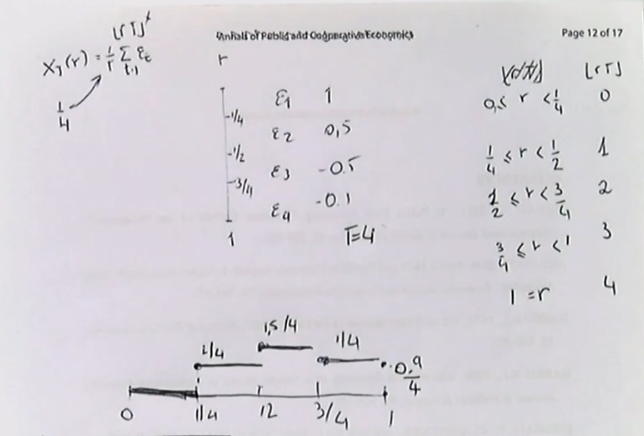 Annals of Public and Cooperative Economics
Page 12 of 17
[rT]
X_T(r) = 1/T Σ ε_t
t=1
1/4
r
-1/4
-1/2
-3/4
1
ε1 1
ε2 0,5
ε3 -0.5
ε4 -0.1
T=4
[rT]
0 ≤ r < 1/4 0
1/4 ≤ r < 1/2 1
1/2 ≤ r < 3/4 2
3/4 ≤ r < 1 3
1 = r 4
1/4
1,5/4
1/4
0.9/4
0 1/4 12 3/4 1